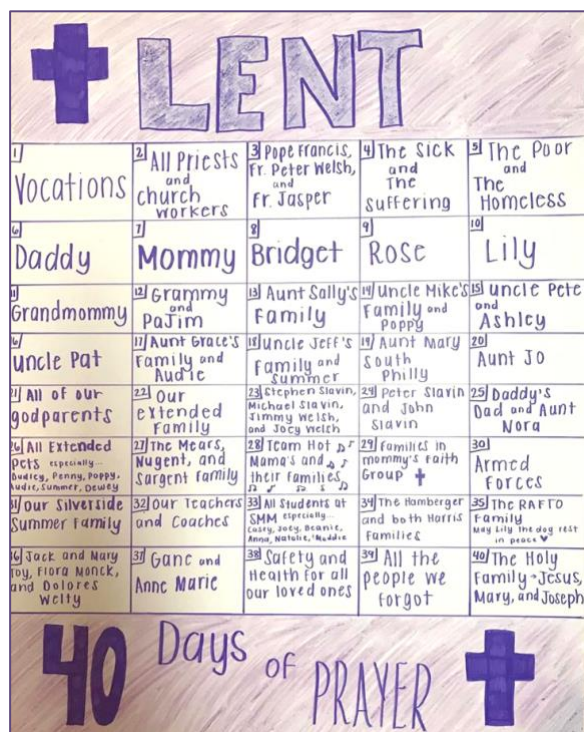 LENT
1
Vocations
2 All Priests
and
church
workers
3 Pope Francis,
Fr. Peter Welsh,
and
Fr. Jasper
4 The Sick
and
The
Suffering
5 The Poor
and
The
Homeless
6
Daddy
7
Mommy
8
Bridget
9
Rose
10
Lily
11
Grandmommy
12 Grammy
and
PaJim
13 Aunt Sally's
Family
14 Uncle Mike's
Family and
Poppy
15 Uncle Pete
and
Ashley
16
Uncle Pat
17 Aunt Grace's
Family and
Audie
18 Uncle Jeff's
Family and
Summer
19 Aunt Mary
South
Philly
20
Aunt Jo
21 All of our
godparents
22 Our
extended
Family
23 Stephen Slavin,
Michael Slavin,
Jimmy Welsh,
and Joey Welch
24 Peter Slavin
and John
Slavin
25 Daddy's
Dad and Aunt
Nora
26 All Extended
Pets especially...
Dudley, Penny, Poppy,
Audie, Summer, Dewey
27 The Mears,
Nugent, and
Sargent Family
28 Team Hot
Mama's and
their Families
29 Families in
mommy's Faith
Group
30
Armed
Forces
31 Our Silverside
Summer Family
32 Our Teachers
and Coaches
33 All Students at
SMM especially...
Casey, Joey, Beanie,
Anna, Natalie, Maddie
34 The Hamberger
and both Harris
Families
35 The RAFTO
Family
May Lily the dog rest
in peace ♥
36 Jack and Mary
Toy, Flora Monck,
and Dolores
Welty
37 Ganc and
Anne Marie
38 Safety and
Health for all
our loved ones
39 All the
people we
forgot
40 The Holy
Family → Jesus,
Mary, and Joseph
40 Days of PRAYER